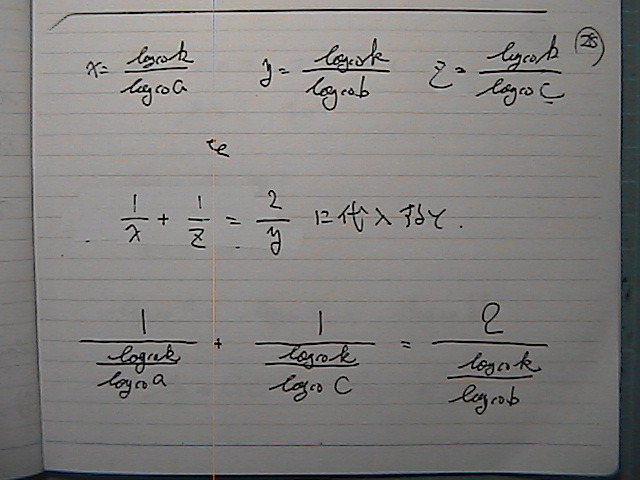 x = log₁₀k / log₁₀a  y = log₁₀k / log₁₀b  z = log₁₀k / log₁₀c  (25)
を
1/x + 1/z = 2/y に代入すると.
1 / (log₁₀k / log₁₀a) + 1 / (log₁₀k / log₁₀c) = 2 / (log₁₀k / log₁₀b)